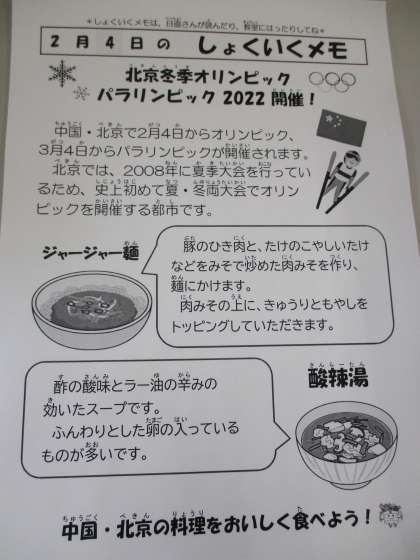 ＊しょくいくメモは、日直さんが読んだり、教室にはったりしてね＊
２月４日の しょくいくメモ
北京冬季オリンピック
パラリンピック 2022 開催！
中国・北京で２月４日からオリンピック、
３月４日からパラリンピックが開催されます。
北京では、2008年に夏季大会を行ってい
るため、史上初めて夏・冬両大会でオリン
ピックを開催する都市です。
ジャージャー麺
豚のひき肉と、たけのこやしいたけ
などをみそで炒めた肉みそを作り、
麺にかけます。
肉みその上に、きゅうりともやしを
トッピングしていただきます。
酸辣湯
酢の酸味とラー油の辛みの
効いたスープです。
ふんわりとした卵の入っている
ものが多いです。
中国・北京の料理をおいしく食べよう！